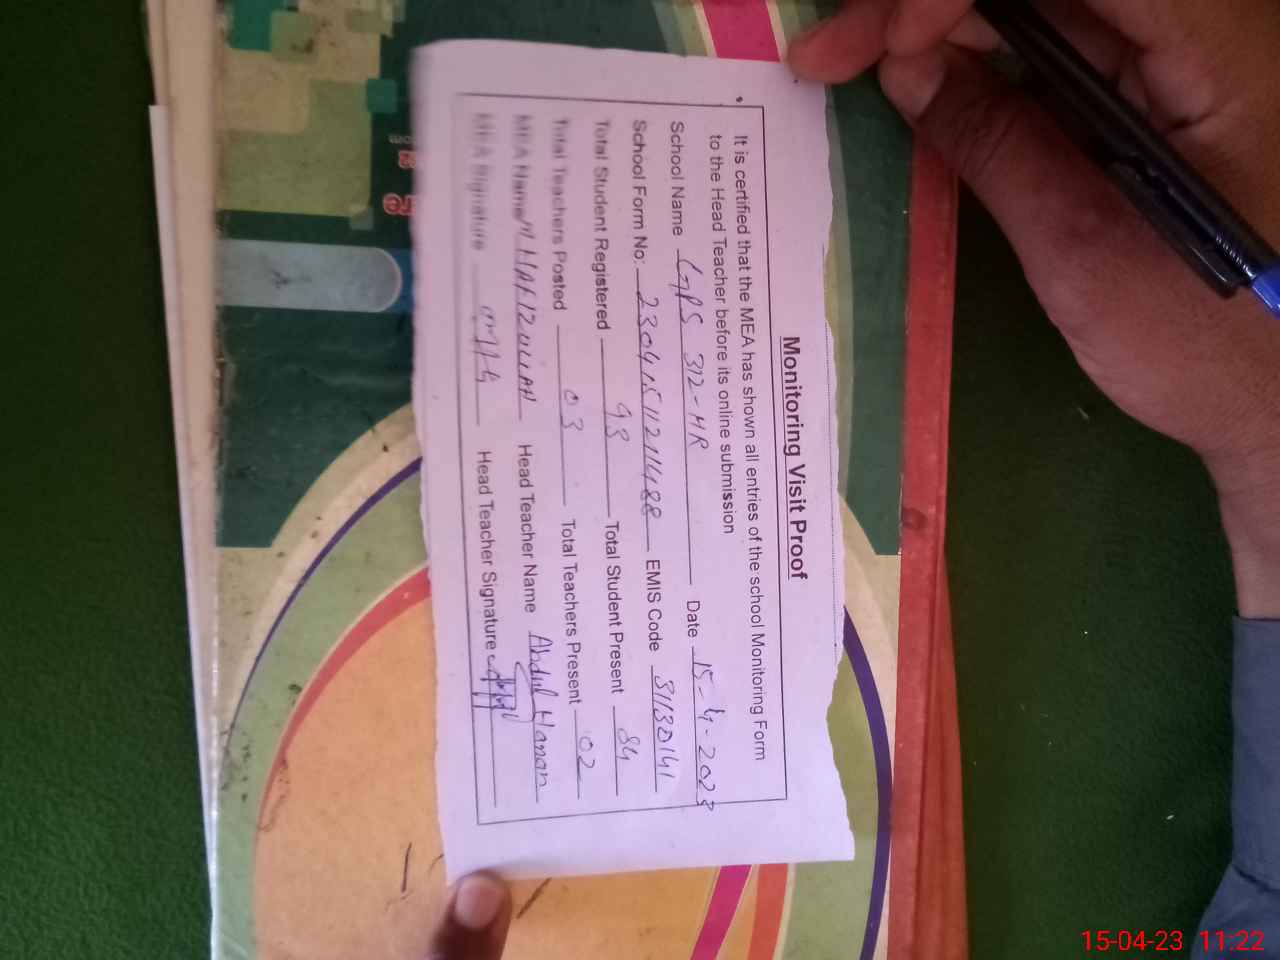 Monitoring Visit Proof
It is certified that the MEA has shown all entries of the school Monitoring Form
to the Head Teacher before its online submission
School Name GPS 312-HR Date 15-4-2023
School Form No: 230415112111488 EMIS Code 31130141
Total Student Registered 98 Total Student Present 84
Total Teachers Posted 03 Total Teachers Present 02
MEA Name M HAFIZULLAH Head Teacher Name Abdul Hanan
MEA Signature Head Teacher Signature
15-04-23 11:22